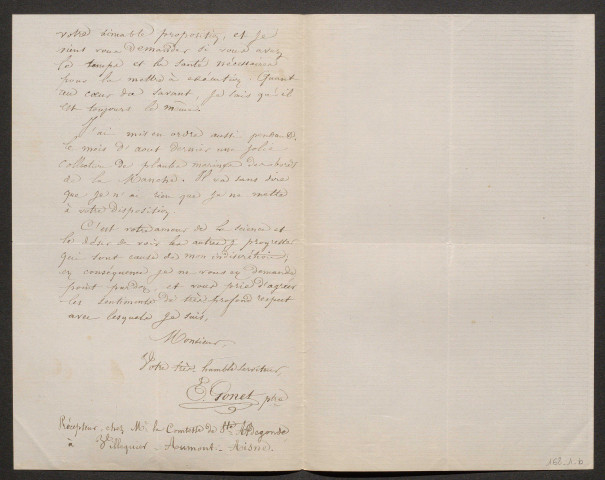 votre aimable proposition, et je
viens vous demander si vous avez
le temps et la santé nécessaire
pour la mettre à exécution. Quant
au cœur du savant, je sais qu'il
est toujours le même.
J'ai mis en ordre aussi pendant
le mois d'aout dernier une jolie
collection de plantes marines des côtes
de la Manche. Il va sans dire
que je n'ai rien que je ne mette
à votre disposition
C'est votre amour de la science et
le désir de voir les autres y progresser
qui sont cause de mon indiscrétion;
en conséquence je ne vous en demande
point pardon, et vous prie d'agréer
les sentiments de très profond respect
avec lesquels je suis,
Monsieur,
Votre très humble serviteur
E. Gonet ptre
Précepteur chez Me la Comtesse de Ste Aldegonde
à Villequier-Aumont - Aisne.